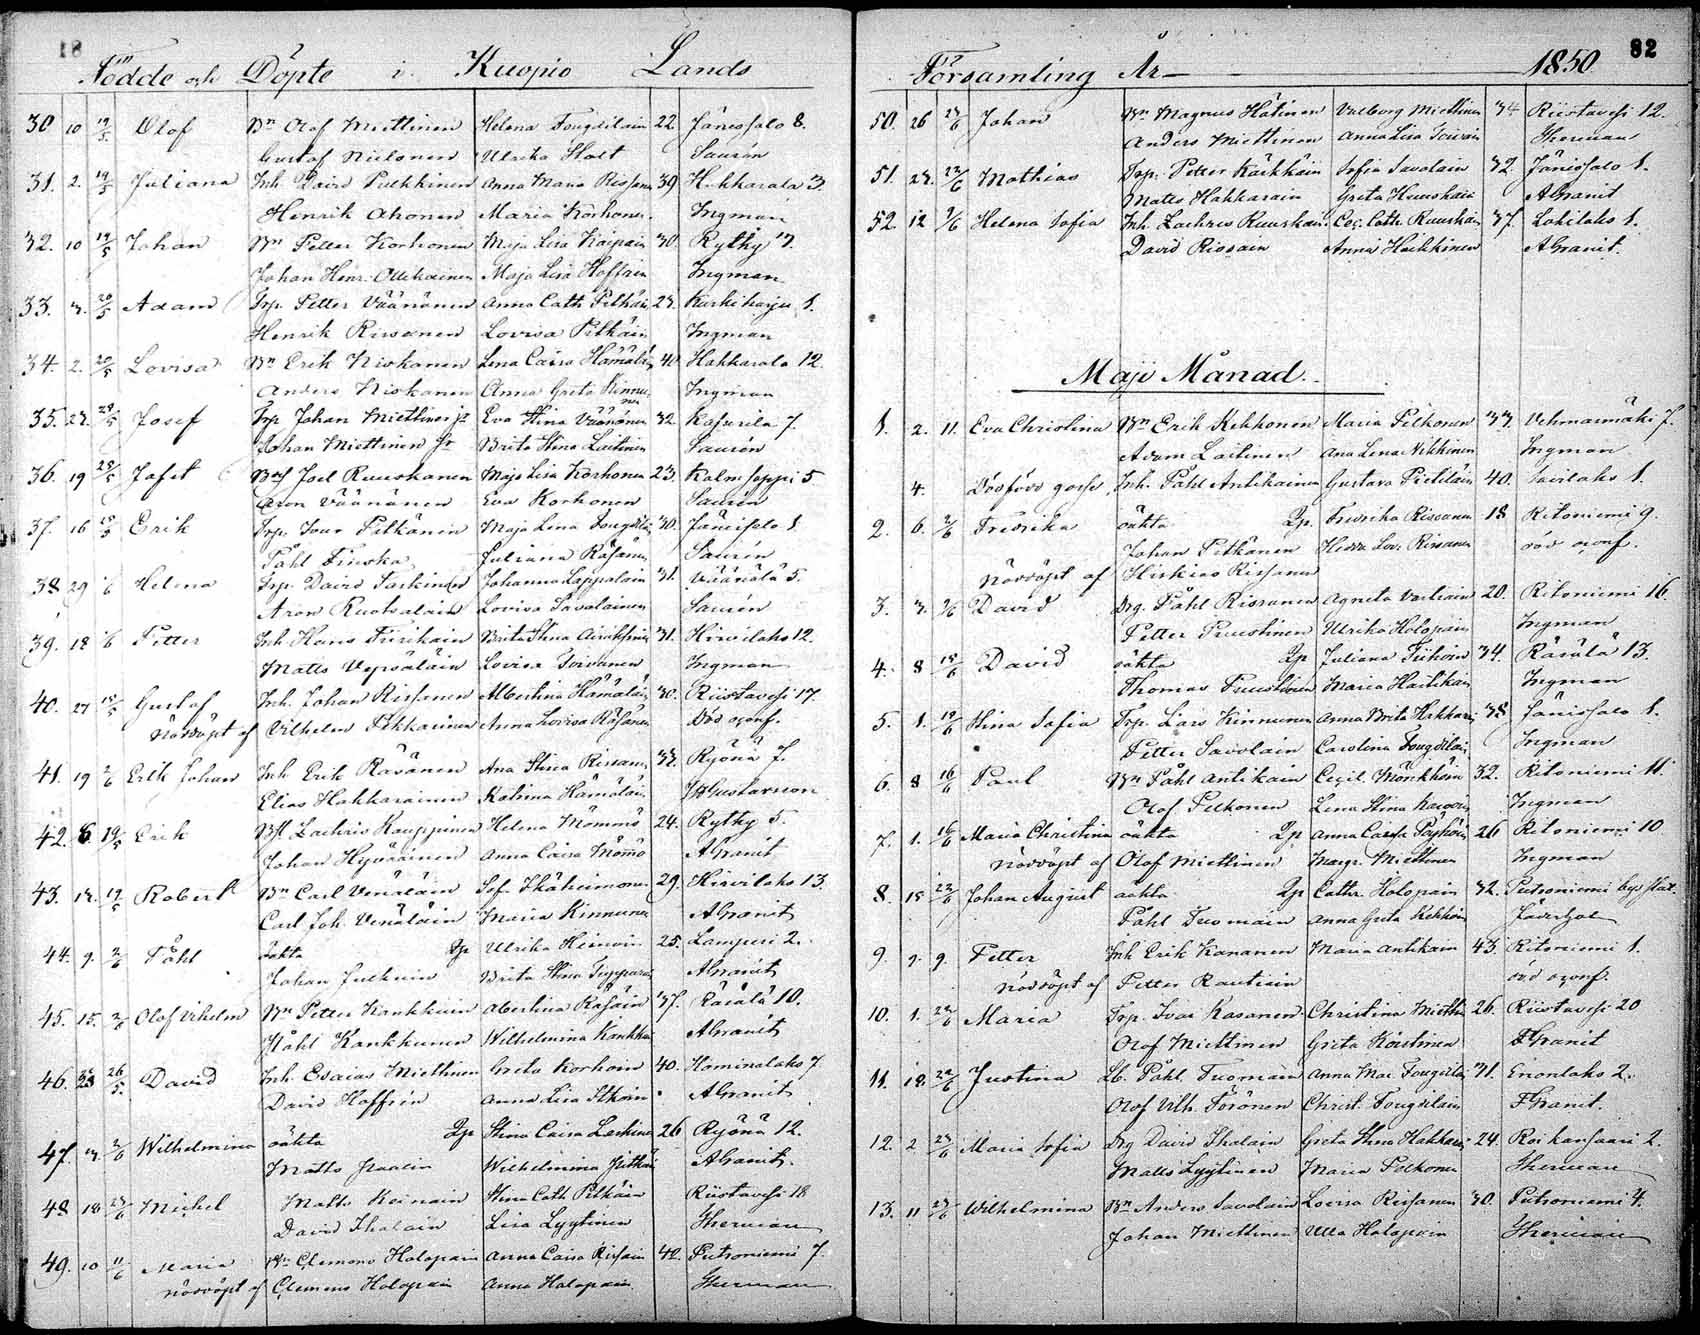 18
Födde och Döpte i Kuopio Lands
30 10 19/5 Olof Bn Olof Miettinen Helena Tougdilain 22 Jänissalo 8.
Gustaf Nielonen Ulrika Holt Saurén
31. 2. 19/5 Juliana Inh. David Pulkkinen Anna Maria Rissanen 39 Hakkarala 3.
Henrik Ahonen Maria Korhonen. Ingman
32. 10 19/5 Johan Bn Petter Korhonen Maja Lisa Kaipain 30. Rytky 13.
Johan Henr. Ollikainen Maja Lisa Hoffrén Ingman
33. 3. 20/5 Adam Trp. Petter Väänänen Anna Cath. Pitkäin 23. Kurkiharju 1.
Henrik Rissanen Lovisa Pitkäin Ingman
34. 2. 20/5 Lovisa Bn Erik Niskanen Lena Caisa Hämäläin 40. Hakkarala 12.
Anders Niskanen Anna Greta Kinnunen Ingman
35. 23. Josef Trp Johan Miettinen Eva Stina Väänänen 32. Kasurila 7.
Johan Miettinen Brita Stina Laitinen Saurén
36. 19 Jafet Joel Ruuskanen Maja Lisa Korhonen 23. Kalmsoppi 5
Aron Väänänen Eva Korhonen Saurén
37. 16 Erik Trp. Ivar Pitkänen Maja Lena Tougdilain 30. Jänissalo 1.
Påhl Finska Juliana Räsänen Saurén
38 29 Helena Trp. David Taskinen Johanna Lappalain 31. Väänälä 5.
Aron Ruotsalain Lovisa Savolainen Saurén
39. 18 Petter Inh. Hans Brita Stina 31. Hirvilaks 12.
Matts Vepsäläin Lovisa Toivanen Ingman
40. 27 Gustaf Inh. Johan Rissanen Albertina Hämäläin 30. Riistavesi 17
nöddöpt af Vilhelm Pekkarinen Anna Lovisa Räsänen död oconf.
41. 19 Erik Johan Inh. Erik Räsänen Ana Stina Rissanen Ryönä 7.
Elias Hakkarainen Katrina Hämäläin Gustavson
42. 6. 19/5 Erik Zachris Kauppinen Helena Mömmö 24. Rytky 5.
Johan Hyväinen Anna Caisa Mömmö AGranit
43. 13. 19/5 Robert Bn Carl Venäläin Sof. Ikäheimonen 29. Hirvilaks 13.
Carl Joh. Venäläin Maria Kinnunen AGranit
44. 9. 2/6 Påhl oäkta Qp Ulrika Heinoin 25. Lamperi 2.
Johan Julkuin Brita Stina AGranit
45. 15. 2/6 Olof Vihelm Bn Petter Kankkuin Abertina Räsäin 37. Räsälä 10.
Påhl Kankkunen Wilhelmina Kankkuin AGranit
46. 26/5. David Inh. Esaias Miettinen Greta Korhoin 40. Kominalaks 7
David Hoffrén Anna Lisa Itkoin. AGranit
47. 3. 2/6 Wilhelmina oäkta Qp Stina Caisa Laskinen 26 Ryönä 12.
Matts Wilhelmina Pitkäin AGranit.
48 18 23/6 Michel Matts Keinain Stina Cath. Pitkäin Riistavesi 18
David Ihalain Lisa Lyytinen Sherman
49. 10 11/6 Maria Bn Clemens Holopain Anna Caisa Rissain 42. Putroniemi 7.
nöddöpt af Clemens Holopain Anna Holopain Sherman
Församling År 1850 82
50. 26 23/6 Johan Bn Magnus Hätinen Valborg Miettinen 34 Riistavesi 12.
Anders Miettinen Anna Lisa Toivain Sherman
51. 23. 23/6 Mathias Trp. Petter Kärkkäin Sofia Savolain 32. Jänissalo 1.
Matts Hakkarain Greta AGranit
52. 12 9/6 Helena Sofia Inh. Zachris Ruuskain Cec. Cath. Ruuskain 37. Lakilaks 1.
David Rissain Anna Heikkinen AGranit.
Maji Månad.
1. 2. 11. Eva Christina Bn Erik Kekkonen Maria Pelkonen 33. Vehmasmäki 7.
Adam Laitinen Ana Lena Nikkinen Ingman
4. Dödföds gosse, Inh. Påhl Antikainen Gustava Pietiläin 40. Toivlaks 1.
2. 6. 2/6 Fredrika oäkta Qp. Fredrika Rissanen 18 Ritoniemi 9.
Johan Pitkänen Hedda Lov. Rissanen död oconf.
nöddöpt af Hiskias Rissanen
3. 3. 9/6 David Drg. Påhl Rissanen Agneta Vartiain 20. Ritoniemi 16
Petter Puustinen Ulrika Holopain Ingman
4. 8 David oäkta Qp Juliana Tiihoin 34. Räsälä 13.
Thomas Puustinen Maria Hartikain Ingman
5. 1. Stina Sofia Trp. Lars Kinnunen Anna Brita Hakkarain 38. Jänissalo 1.
Petter Savolain Carolina Tougdilain Ingman
6. 8 16/6 Paul Bn Påhl Antikain Cecil. Mönkköin 32. Ritoniemi 11.
Olof Pelkonen Lena Stina Ingman
7. 1. 16/6 Maria Christina oäkta Qp Anna Caisa Pöyhöin 26 Ritoniemi 10
nöddöpt af Olof Miettinen Margr. Miettinen Ingman
8. 15 23/6 Johan August oäkta Qp Cathr. Holopain 32. Putroniemi
Påhl Tuomain Anna Greta Kekkoin
9. 9. 9. Petter Inh Erik Kananen Maria Antikain 43. Ritoniemi 1.
nöddöpt af Petter Rautiain död oconf.
10. 1. 23/6 Maria Trp. Ivar Kasanen Christina Miettin 26. Riistavesi 20
Olof Miettinen Greta Koistinen FGranit
11. 18. 23/6 Justina Lb. Påhl Tuomain Anna Mar. Tougdilain 31. Enonlaks 2.
Olof Vilh. Törönen Christ. Tougdilain FGranit.
12. 2 23/6 Maria Sofia Drg David Ihalain Greta Stina Hakkarain 24. Roikansaari 2.
Matts Lyytinen Maria Pelkonen Sherman
13. 11 23/6 Wilhelmina Bn Anders Savolain Lovisa Rissanen 30. Putroniemi 4.
Johan Miettinen Ulla Holopain Sherman